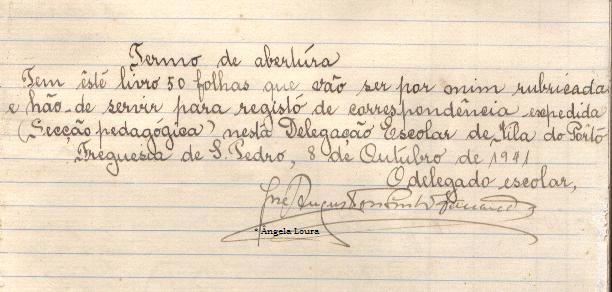 Termo de abertura
Tem êste livro 50 folhas que vão ser por mim rubricadas
e hão-de servir para registo de correspondência expedida
(Secção pedagógica) nesta Delegação Escolar de Vila do Porto
Freguesia de S. Pedro, 8 de Outubro de 1941
O delegado escolar,
José Augusto
* Ângela Loura